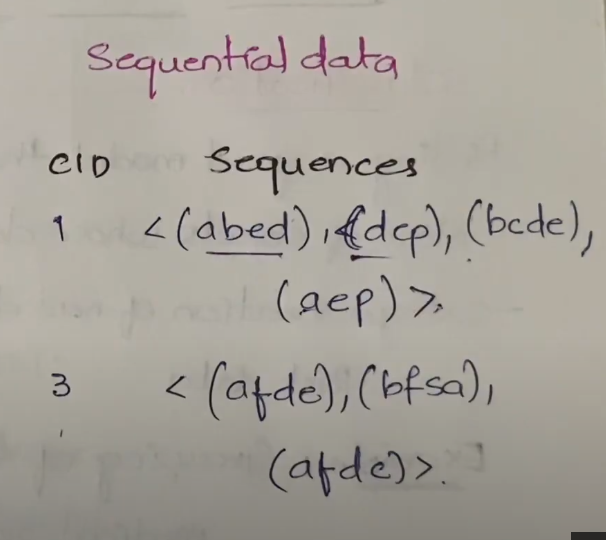 Sequential data
CID Sequences
1 <(abed), (dep), (bcde),
(aep)>.
3 <(afde), (bfsa),
(afde)>.